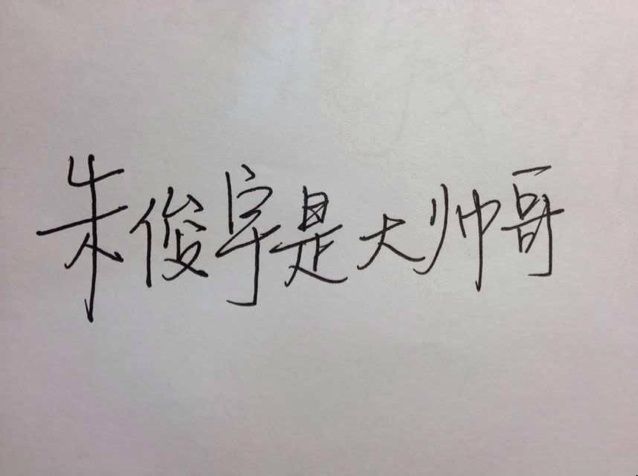 朱俊宇是大帅哥